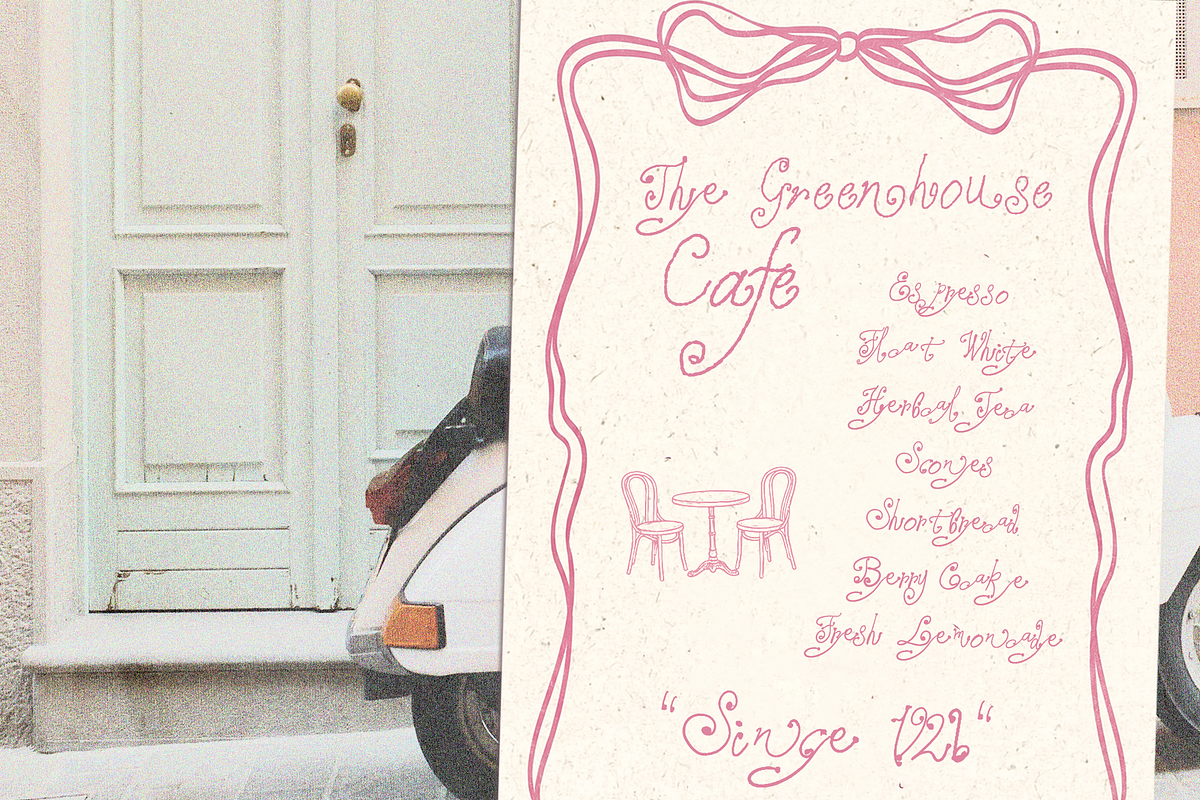 The Greenhouse
Cafe
Espresso
Flat White
Herbal Tea
Scones
Shortbread
Berry Cake
Fresh Lemonade
“Since 1926“